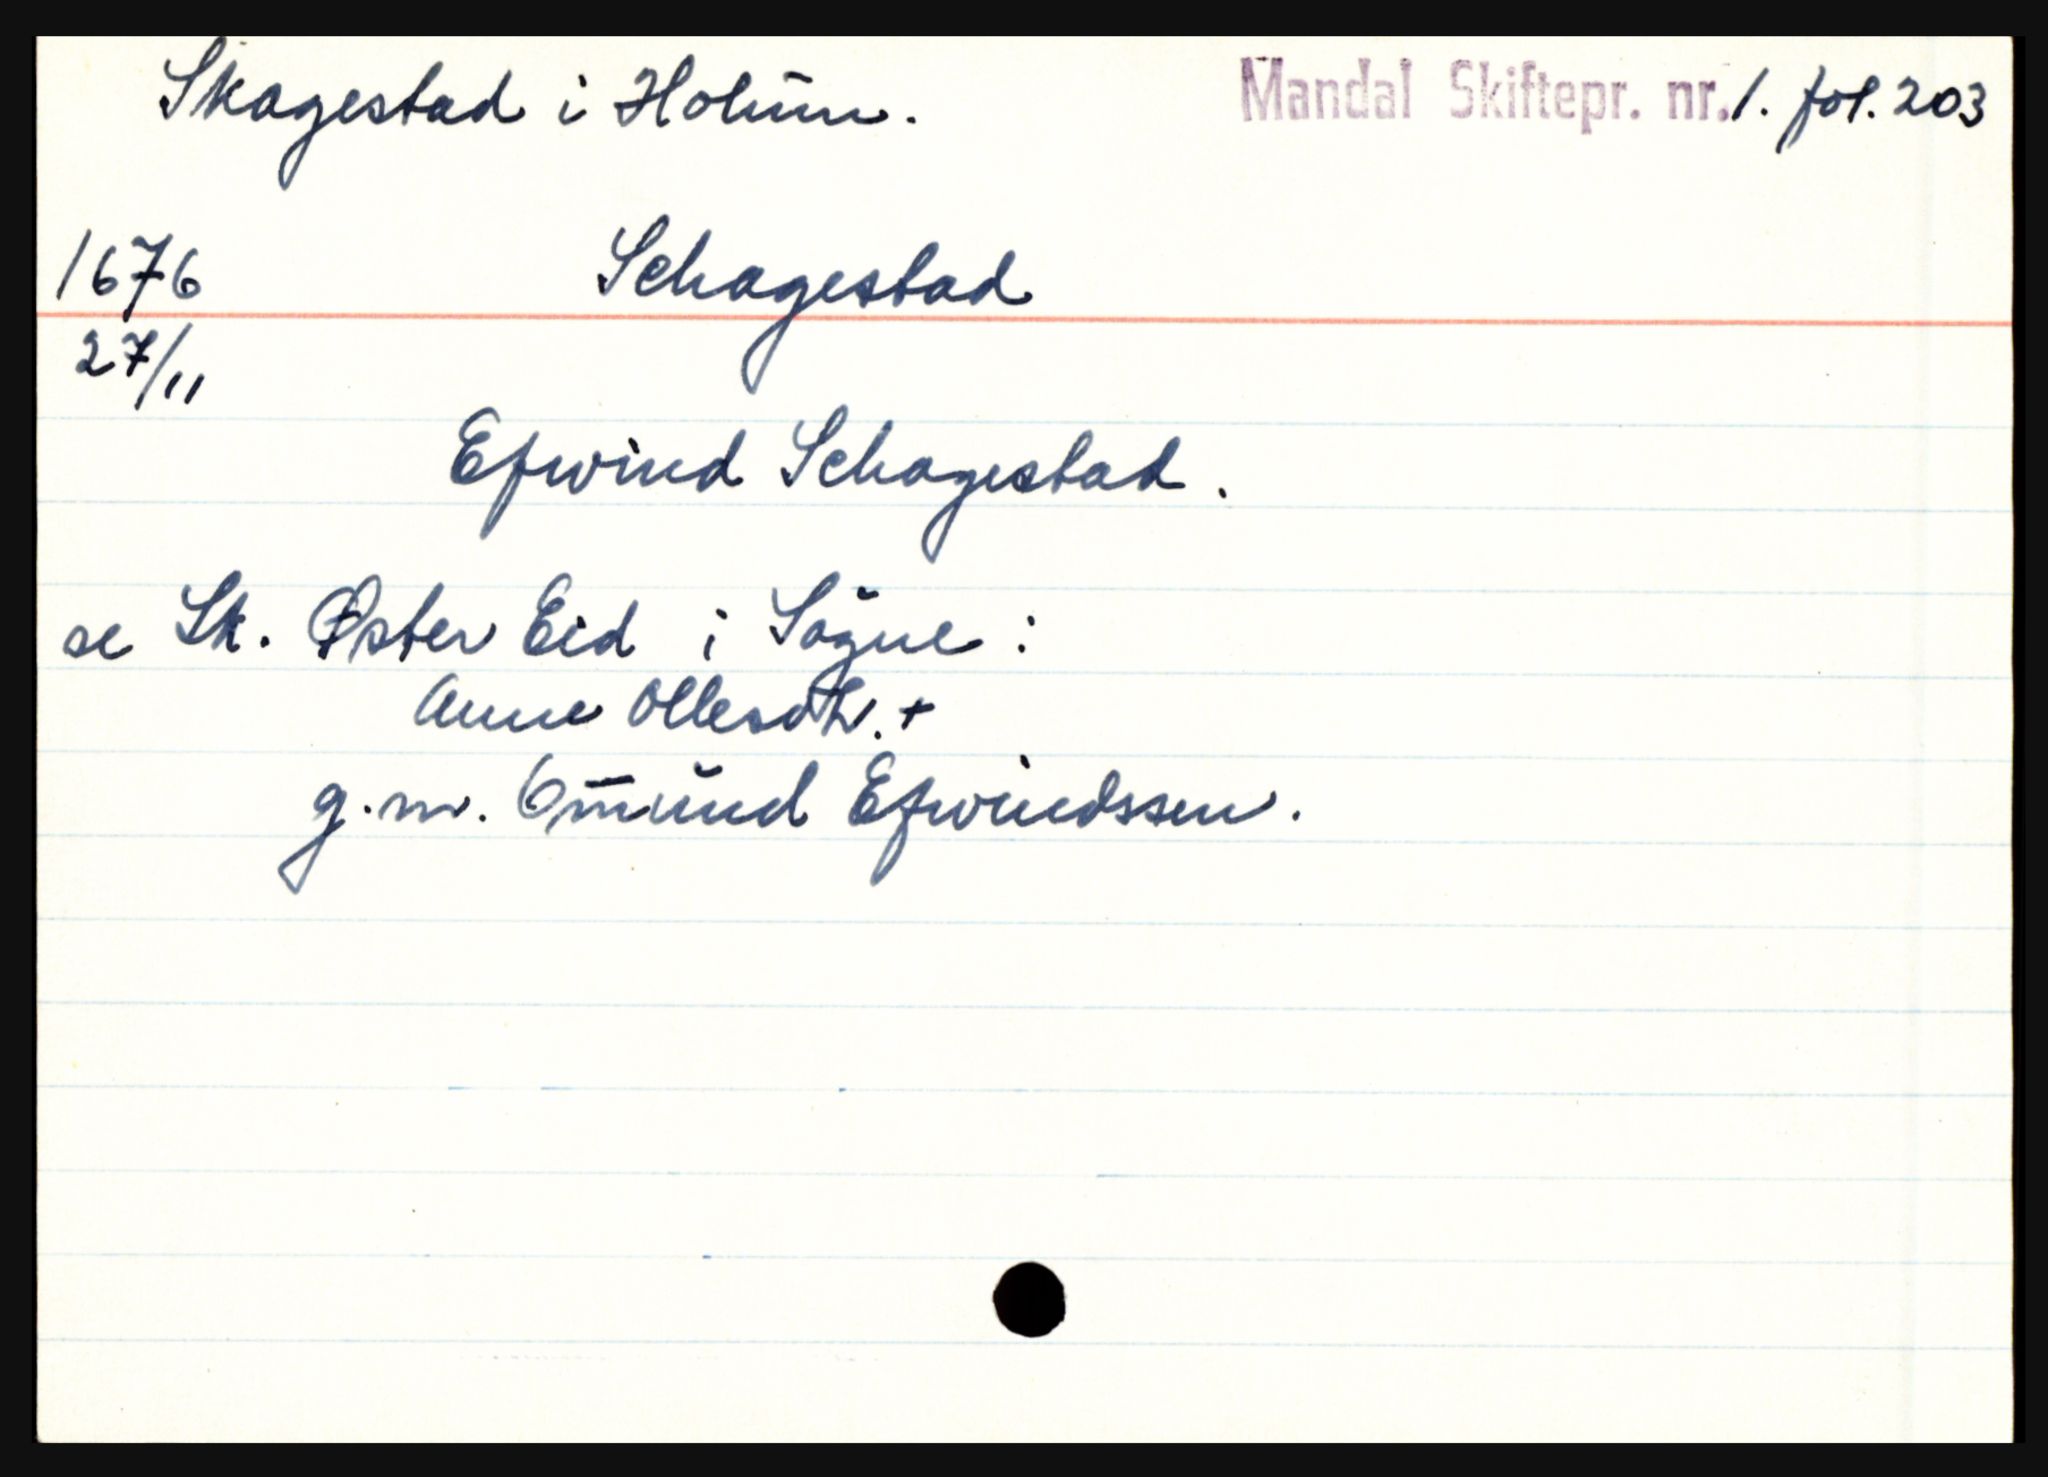 Skagestad i Holum. Mandal Skiftepr. nr. 1. fol. 203
1676 Schagestad
27/11
Efwind Schagestad.
se Sk. Øster Eid i Sögne:
Anne Ollesdtr. +
g.m. Omund Efwindssen.